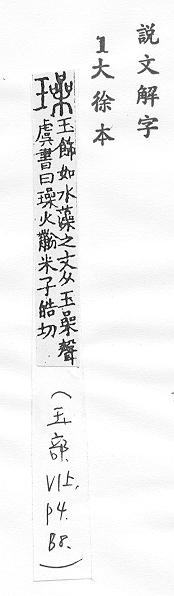 說文解字
1大徐本
璪
玉飾如水藻之文从玉喿聲
虞書曰璪火黺米子皓切
（玉部，V1上，P4．B8．）